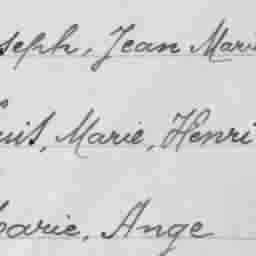 seph, Jean Mari
uis, Marie, Henri
arie, Ange